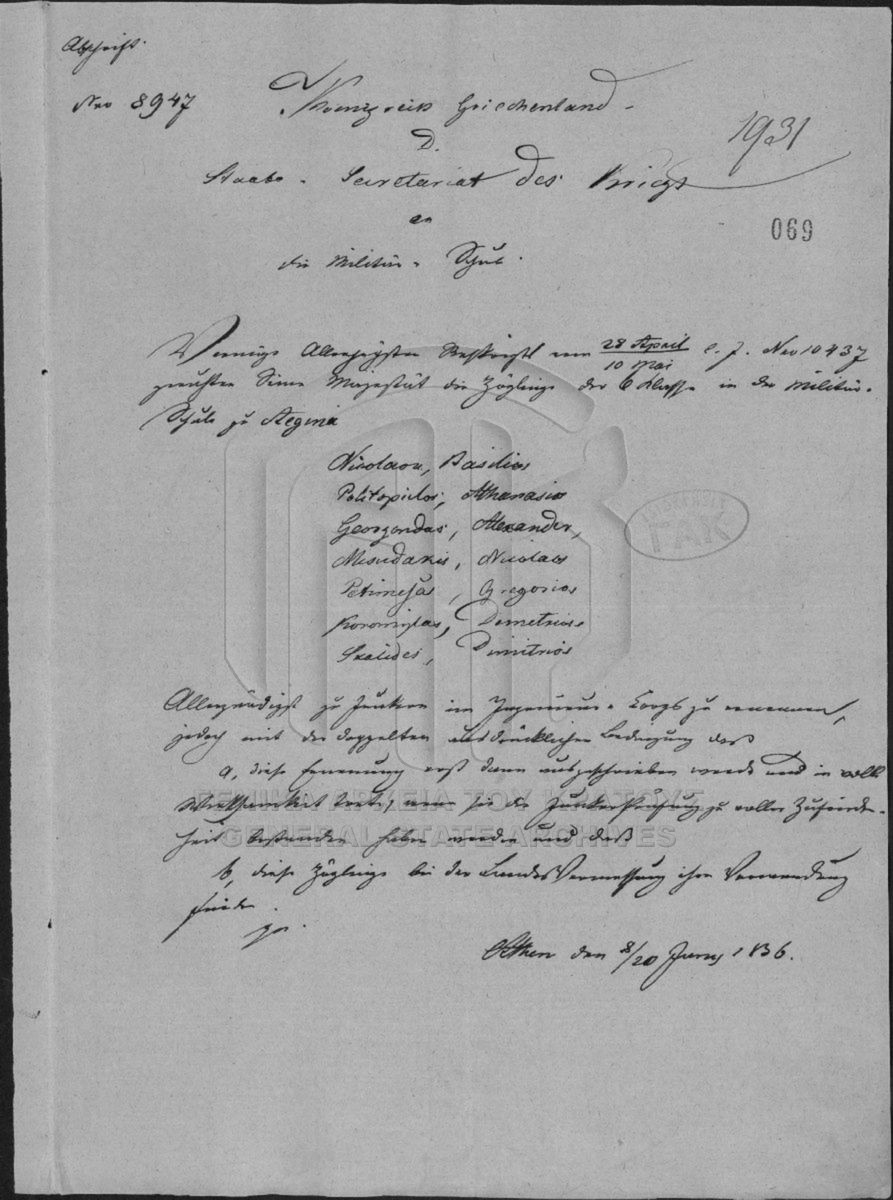 Abschrift.
Nro 8947
Koenigreich Griechenland
1931
D.
Staats-Secretariat des Kriegs
an
069
die Militär-Schule.
Vermöge Allerhöchsten Rescripts vom 28 April / 10 Mai l. J. Nro 10437
geruhten Seine Majestät die Zöglinge der 6 Klasse in der Militär-
Schule zu Aegina
Nicolaou, Basilios
Politopulos, Athanasios
Georgandas, Alexander,
Nicolaos
Petimesas, Gregorios
Koromilas, Demetrios
Skalides, Dimitrios
Allergnädigst zu Junkern im Ingenieur-Corps zu ernennen,
jedoch mit der doppelten ausdrücklichen Bedingung daß
a, diese Ernennung erst dann ausgeschrieben werde und in volle
Wirksamkeit trete, wenn sie die Junker Prüfung zu voller Zufrieden-
heit bestanden haben werden und daß
b, diese Zöglinge bei der Landes Vermessung ihre Verwendung
finden.
Athen den 8/20 Juny 1836.
ΓΕΝΙΚΑ ΑΡΧΕΙΑ ΤΟΥ ΚΡΑΤΟΥΣ
GENERAL STATE ARCHIVES